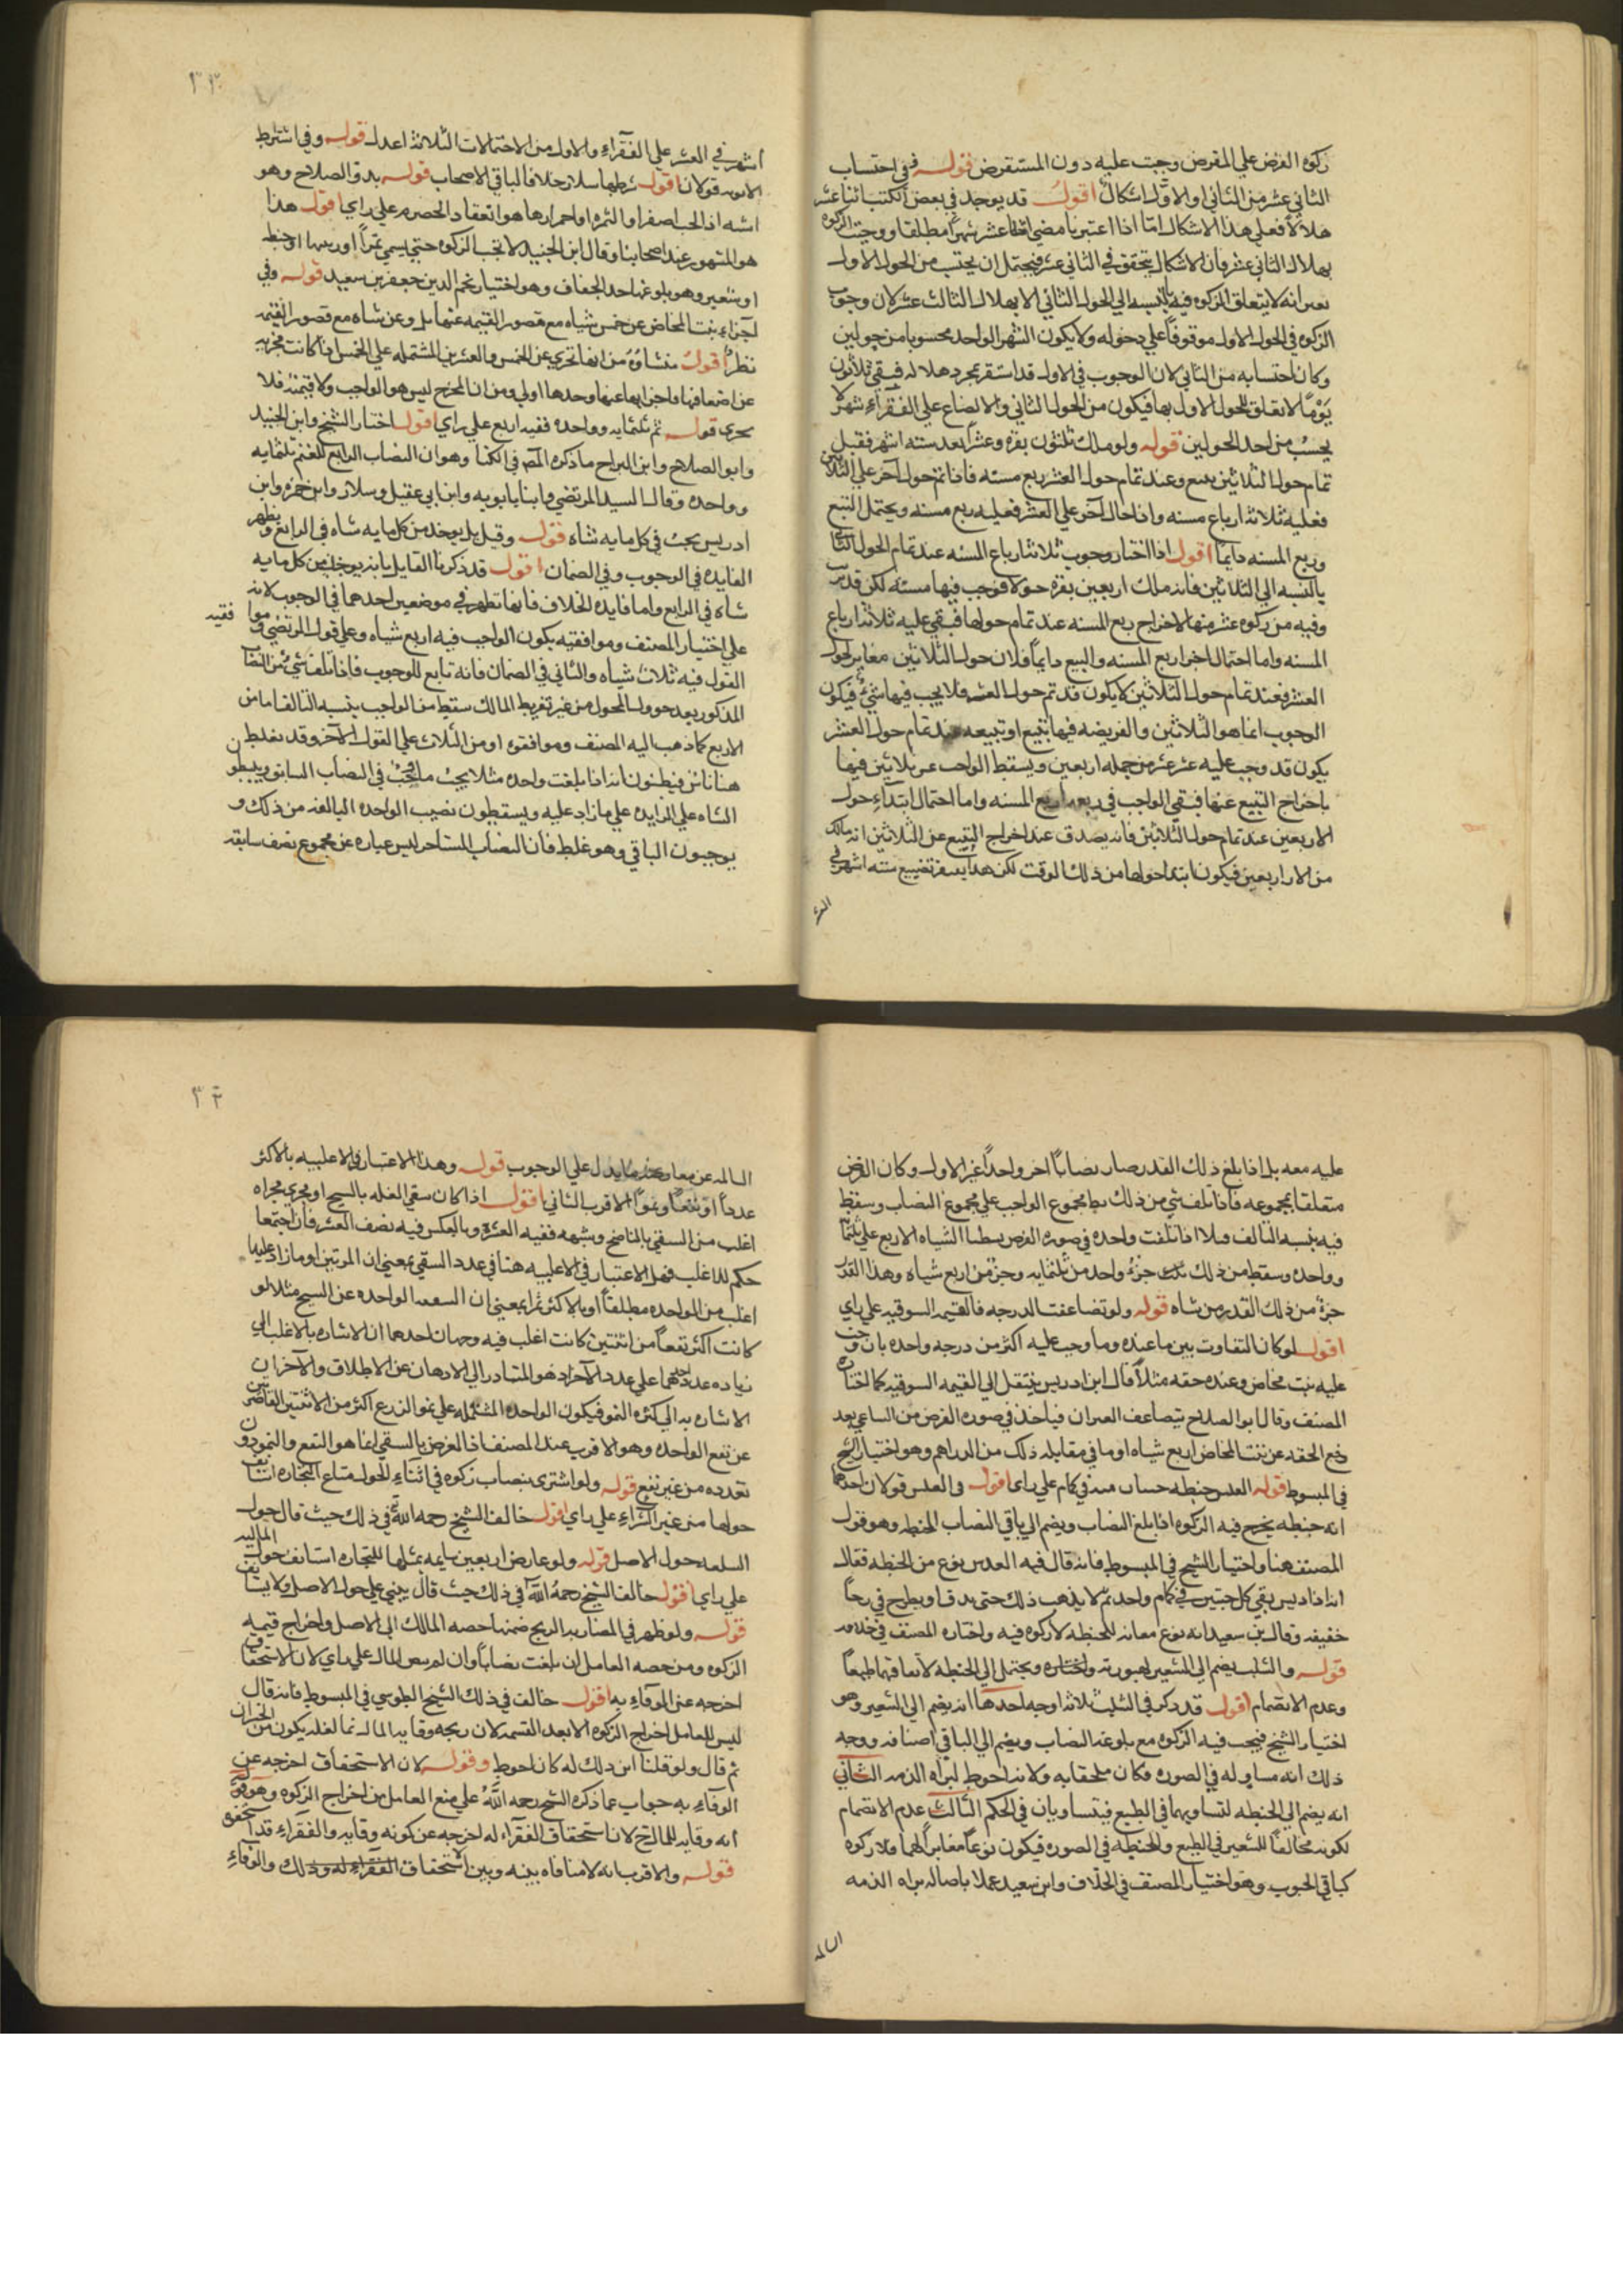 زكوة القرض علي المقرض وجبت عليه دون المستقرض قوله ففي احتساب
الثاني عشر من الثاني او الاول اشكال اقول قد يوجد في بعض الكتب اثنا عشر
هلالا فعلي هذا الاشكال امّا اذا اعتبرنا مضي اثنا عشر شهراً مطلقا ووجبت الزكوة
بهلال الثاني عشر فان الاشكال يتحقق في الثاني عشر فيحتمل ان يحتسب من الحول الاول
بمعنى انه لا يتعلق الزكوة فيه بالنسبه الي الحول الثاني الا بهلال الثالث عشر لان وجوب
الزكوة في الحول الاول موقوفاً علي دخوله ولا يكون الشهر الواحد محسوبا من حولين
وكان احتسابه من الثاني لان الوجوب في الاول قد استقر بمجرد هلاله فبقي ثلاثون
يَوْماً لا تعلق للحول الاول بها فيكون من الحول الثاني والا لضاع علي الفقرآء شهر لا
يحسب من احد الحولين قوله ولو ملك ثلثون بقره وعشراً بعد سته اشهر فقبل
تمام حول الثلاثين تبيع وعند تمام حول العشر ربع مسنه فاذا تم حول آخر علي الثلاثين
فعليه ثلاثة ارباع مسنه واذا حال آخر علي العشر فعليه ربع مسنه ويحتمل التبيع
وربع المسنه دايماً اقول اذا اختار وجوب ثلاثة ارباع المسنه عند تمام الحول الثاني
بالنسبه الي الثلاثين فانه ملك اربعين بقره حولا فوجب فيها مسنه لكن قد
وفيه من زكوة عشر منها لاخراج ربع المسنه عند تمام حولها فبقي عليه ثلاثة ارباع
المسنه واما احتمال اخراج ربع المسنه والتبيع دايماً فلان حول الثلاثين مغاير لحول
العشر فعند تمام حول الثلاثين لا يكون قد تم حول العشر فلا يجب فيها شيء فيكون
الوجوب انما هو الثلاثين والفريضه فيها تبيع او تبيعه عند تمام حول العشر
يكون قد وجب عليه عشر من جمله اربعين ويسقط الواجب عن ثلاثين فيها
باخراج التبيع عنها فبقي الواجب في ربعه وهو ربع المسنه واما احتمال ابتداء حول
الاربعين عند تمام حول الثلاثين فانه يصدق عند اخراج التبيع عن الثلاثين انه مالك
من الار اربعين فيكون ابتدا حولها من ذلك الوقت لكن هذا تضييع سته اشهر في
العشر
٣٣
اشهر في العشر علي الفقرآء والاول من الاحتمالات الثلاثة اعدل قوله وفي اشتراط
الانوثه قولان اقول شرطها سلار خلافا لباقي الاصحاب قوله بدو الصلاح وهو
اشبه اذ الحب اصفرا والثمره او احمرارها هو انعقاد الحصرم علي راي اقول هذا
هو المشهور عند اصحابنا وقال ابن الجنيد لا تجب الزكوه حتي يسمي تمراً او زبيبا او حنطه
او شعير وهو بلوغها حد الجفاف وهو اختيار نجم الدين جعفر بن سعيد قوله وفي
اجزاء بنت المخاض عن خمس شياه مع قصور القيمه عنها بل وعن شاه مع قصور القيمه
نظر اقول منشاؤه من انها تجزي عن الخمس والعشرين المشتمله علي الخمس فاذا كانت مجزيه
عن اضعافها فاجزايها عنها وحدها اولي ومن ان المخرج ليس هو الواجب ولا قيمته فلا
يجزى قوله ثم ثلثمايه وواحده ففيه اربع علي راي اقول اختار الشيخ وابن الجنيد
وابو الصلاح وابن البراج ما ذكره المصـ في الكتاب وهو ان النصاب الرابع للغنم ثلثمايه
وواحده وقال السيد المرتضي وابنا بابويه وابن ابي عقيل وسلار وابن حمزه وابن
ادريس يجب في كل مايه شاه قوله وقيل بل يوخذ من كل مايه شاه في الرابع وتظهر
الفايده في الوجوب وفي الضمان اقول قد ذكرنا القايل بانه يوخذ من كل مايه
شاه في الرابع واما فايده الخلاف فانها تظهر في موضعين احدهما في الوجوب لانه
علي اختيار المصنف وموافقيه يكون الواجب فيه اربع شياه وعلي قول المرتضي وموا فقيه
القول فيه ثلاث شياه والثاني في الضمان فانه تابع للوجوب فاذا تلف شيء من النصاب
المذكور بعد حوول الحول من غير تفريط المالك سقط من الواجب بنسبه التالف اما من
الاربع كما ذهب اليه المصنف وموافقوه او من الثلاث علي القول الآخر وقد تغلط
هنا ناس فيظنون انه اذا بلغت واحده مثلا يجب ما يجب في النصاب السابق ويسقطون
الشاه علي الزايده علي ما زاد عليه ويسقطون نصيب الواحده البالغه من ذلك و
يوجبون الباقي وهو غلط فان النصاب المستاخر ليس عباره عن مجموع نصف سابقه
عليه معه بل اذا بلغ ذلك القدر صار نصاباً اخر واحداً غير الاول وكان الفرض
متعلقا بمجموعه فاذا تلف شي من ذلك بسط مجموع الواجب علي مجموع النصاب وسقط
فيه بنسبه التالف مثلا اذا تلفت واحده في صورة الفرض بسطنا الشياه الاربع علي ثلثمايه
وواحده وسقط من ذلك جزء واحد من ثلثمايه وجزء من اربع شياه وهذا القدر
جزء من ذلك القدر من شاه قوله ولو تضاعفت الدرجه فالقيمه السوقيه علي راي
اقول لو كان التفاوت بين ما عنده وما وجب عليه اكثر من درجه واحده بان وجبت
عليه بنت مخاض وعنده حقه مثلاً قال ابن ادريس ينتقل الي القيمه السوقيه كما اختاره
المصنف وقال ابو الصلاح يتضاعف الجبران فياخذ في صورة الفرض من الساعي بعد
دفع الحقه عن بنت المخاض اربع شياه او ما في مقابله ذلك من الدراهم وهو اختيار الشيخ
في المبسوط قوله العلس حنطه حبتان منه في كمام علي راي اقول في العلس قولان احدهما
انه حنطه يخرج فيه الزكوة اذا بلغ النصاب ويضم الي باقي النصاب الحنطه وهو قول
المصنف هنا واختيار الشيخ في المبسوط فانه قال فيه العلس نوع من الحنطه فقال
انه اذا ديس بقي كل حبتين في كمام واحد ثم لا يذهب ذلك حتى يدق او يطرح في رحا
خفيفه وقال بن سعيد انه نوع مغاير للحنطه لا زكوه فيه واختاره المصنف في خلافه
قوله والسلت يضم الي الشعير لصورته واختاره ويحتمل الي الحنطه لاتفاقهما طبعاً
وعدم الانضمام اقول قد ذكر في السلت ثلاثة اوجه احدها انه يضم الي الشعير وهو
اختيار الشيخ فيجب فيه الزكوه مع بلوغه النصاب ويضم الي الباقي اصنافه ووجه
ذلك انه مساو له في الصوره فكان ملحقا به ولانه احوط لبراة الذمه الثاني
انه يضم الي الحنطه لتساويهما في الطبع فيتساويان في الحكم الثالث عدم الانضمام
لكونه مخالفا للشعير في الطبع والحنطه في الصوره فيكون نوعاً مغايراً لهما فلا زكوة
كباقي الحبوب وهو اختيار المصنف في الخلاف وابن سعيد عملا باصالة براه الذمه
السالمه
٣٤
السالمه عن معارضه ما يدل علي الوجوب قوله وهذا الاعتبار والاغلبيه بالاكثر
عدداً او نفعاً ونمواً الاقرب الثاني اقول اذا كان سقي الغله بالسيح او يجري مجراه
اغلب من السقي بالناضح وشبهه ففيه العشر وبالعكس فيه نصف العشر فان اجتمعا
حكم للاغلب فهل الاعتبار في الاغلبيه هنا في عدد السقي بمعني ان المرتين او ما زاد عليها
اغلب من الواحده مطلقاً او بالاكثر بمعني ان السقيه الواحده عن السيح مثلا لو
كانت اكثر نفعاً من اثنتين كانت اغلب فيه وجهان احدهما ان الاشاره بالاغلب الي
زياده عدد احدهما علي عدد الآخر اذ هو المتبادر الي الاذهان عن الاطلاق والآخر ان
الاشاره به الي كثرة النمو فيكون الواحده المشتمله علي نمو الزرع اكثر من الاثنتين القاصرتين
عن نفع الواحده وهو الاقرب عند المصنف اذ الغرض بالسقي انما هو النفع والنمو دون
تعدده من غير نفع قوله ولو اشترى بنصاب زكوه في اثناء الحول متاع التجاره استانف
حولها من غير الشراء علي راي اقول خالف الشيخ رحمه الله في ذلك حيث قال حول
السلعه حول الاصل قوله ولو عارض اربعين سايمه بمثلها للتجاره استانف حول الماليه
علي راي اقول خالف الشيخ رحمه الله في ذلك حيث قال يبني علي حول الاصل ولا يستانف
قوله ولو ظهر في المضاربه الربح ضمنها حصه المالك الي الاصل واخراج قيمه
الزكوه ومن حصه العامل ان بلغت نصاباً وان لم ينض المال علي راي لان الاستحقاق
اخرجه عن الوقاء به اقول خالف في ذلك الشيخ الطوسي في المبسوط فانه قال
ليس للعامل اخراج الزكوه الا بعد القسمه لان ربحه وقايه المال لما لعله يكون من الخسران
ثم قال ولو قلنا ان ذلك له كان احوط وقوله لان الاستحقاق اخرجه عن
الوفاء به جواب عما ذكره الشيخ رحمه الله علي منع العامل من اخراج الزكوه وهو
انه وقايه للمالك لان استحقاق الفقرآء له اخرجه عن كونه وقايه والفقراء قد استحقوا
قوله والاقرب انه لا منافاه بينه وبين الاستحقاق الفقراء له وذلك والوفاء